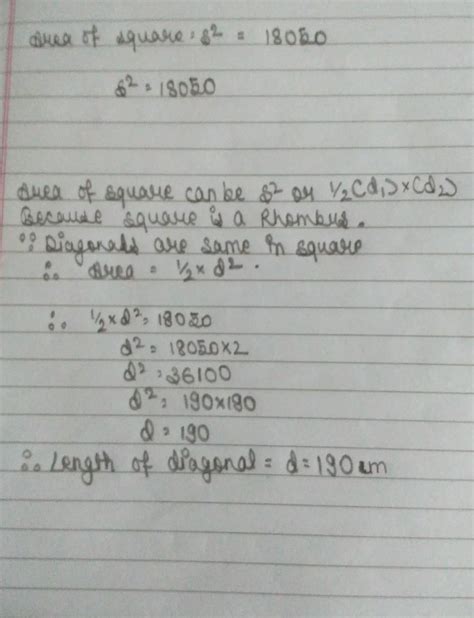 Area of square = s² = 18050
s² = 18050
Area of square can be s² or 1/2(d₁)×(d₂)
Because square is a Rhombus.
∵ Diagonals are same in square
∴ Area = 1/2 × d².
∴ 1/2 × d² = 18050
d² = 18050×2
d² = 36100
d² = 190×190
d = 190
∴ Length of diagonal = d = 190 cm